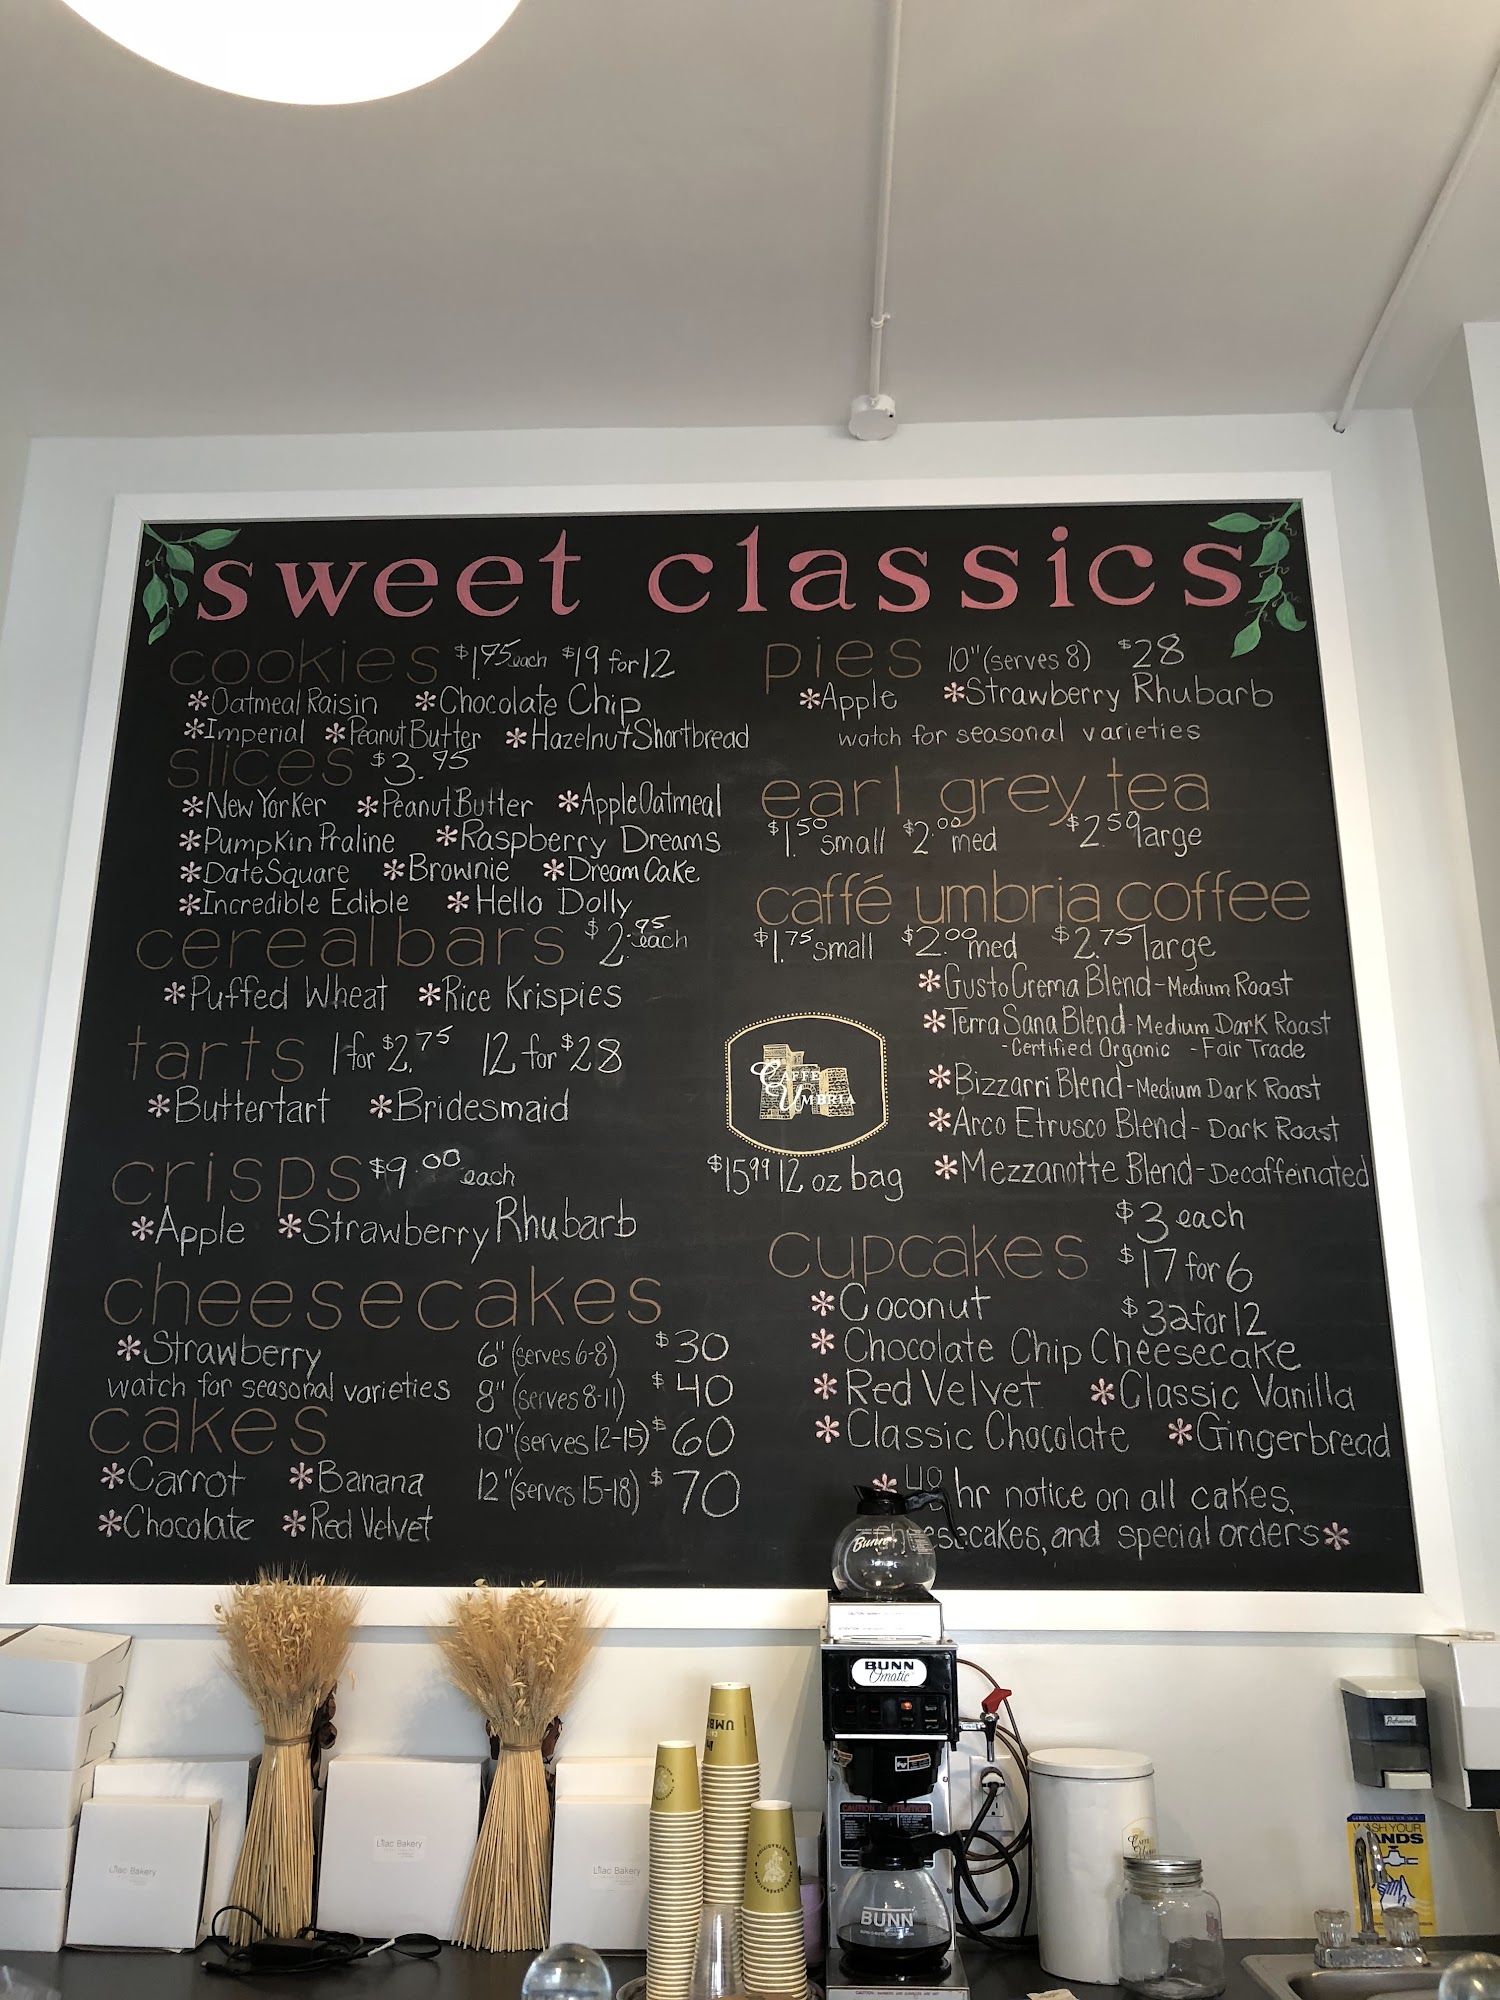 sweet classics
cookies $1.75 each $19 for 12
*Oatmeal Raisin *Chocolate Chip
*Imperial *Peanut Butter *Hazelnut Shortbread
slices $3.95
*New Yorker *Peanut Butter *Apple Oatmeal
*Pumpkin Praline *Raspberry Dreams
*Date Square *Brownie *Dream Cake
*Incredible Edible *Hello Dolly
cereal bars $2.95 each
*Puffed Wheat *Rice Krispies
tarts 1 for $2.75 12 for $28
*Buttertart *Bridesmaid
crisps $9.00 each
*Apple *Strawberry Rhubarb
cheesecakes
*Strawberry
watch for seasonal varieties
cakes
*Carrot *Banana
*Chocolate *Red Velvet
6" (serves 6-8) $30
8" (serves 8-11) $40
10" (serves 12-15) $60
12" (serves 15-18) $70
pies 10" (serves 8) $28
*Apple *Strawberry Rhubarb
watch for seasonal varieties
earl grey tea
$1.50 small $2.00 med $2.50 large
caffé umbria coffee
$1.75 small $2.00 med $2.75 large
*Gusto Crema Blend - Medium Roast
*Terra Sana Blend - Medium Dark Roast
- Certified Organic - Fair Trade
*Bizzarri Blend - Medium Dark Roast
*Arco Etrusco Blend - Dark Roast
*Mezzanotte Blend - Decaffeinated
CAFFE
UMBRIA
$15.99 12 oz bag
cupcakes
$3 each
$17 for 6
$32 for 12
*Coconut
*Chocolate Chip Cheesecake
*Red Velvet *Classic Vanilla
*Classic Chocolate *Gingerbread
*48 hr notice on all cakes,
cheesecakes, and special orders*
Bunn
BUNN
Omatic
CAUTION ATTENTION
BUNN
Lilac Bakery
Lilac Bakery
Lilac Bakery
UMB
CAFFE
Professional
WASH YOUR
HANDS